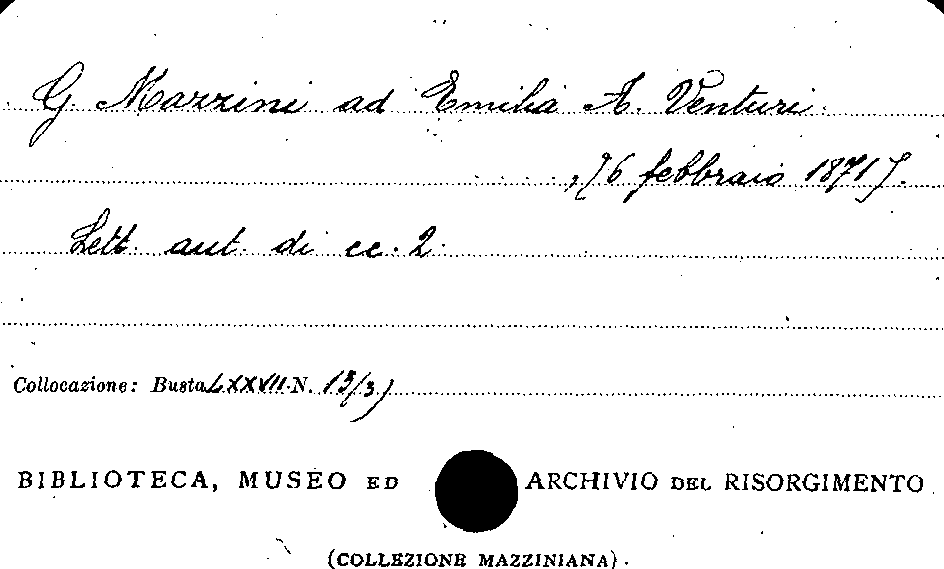 G. Mazzini ad Emilia A. Venturi.
[6 febbraio 1871].
Lett. aut. di cc. 2
Collocazione: Busta LXXVII N. 13/3)
BIBLIOTECA, MUSEO ED ARCHIVIO DEL RISORGIMENTO
(COLLEZIONE MAZZINIANA).